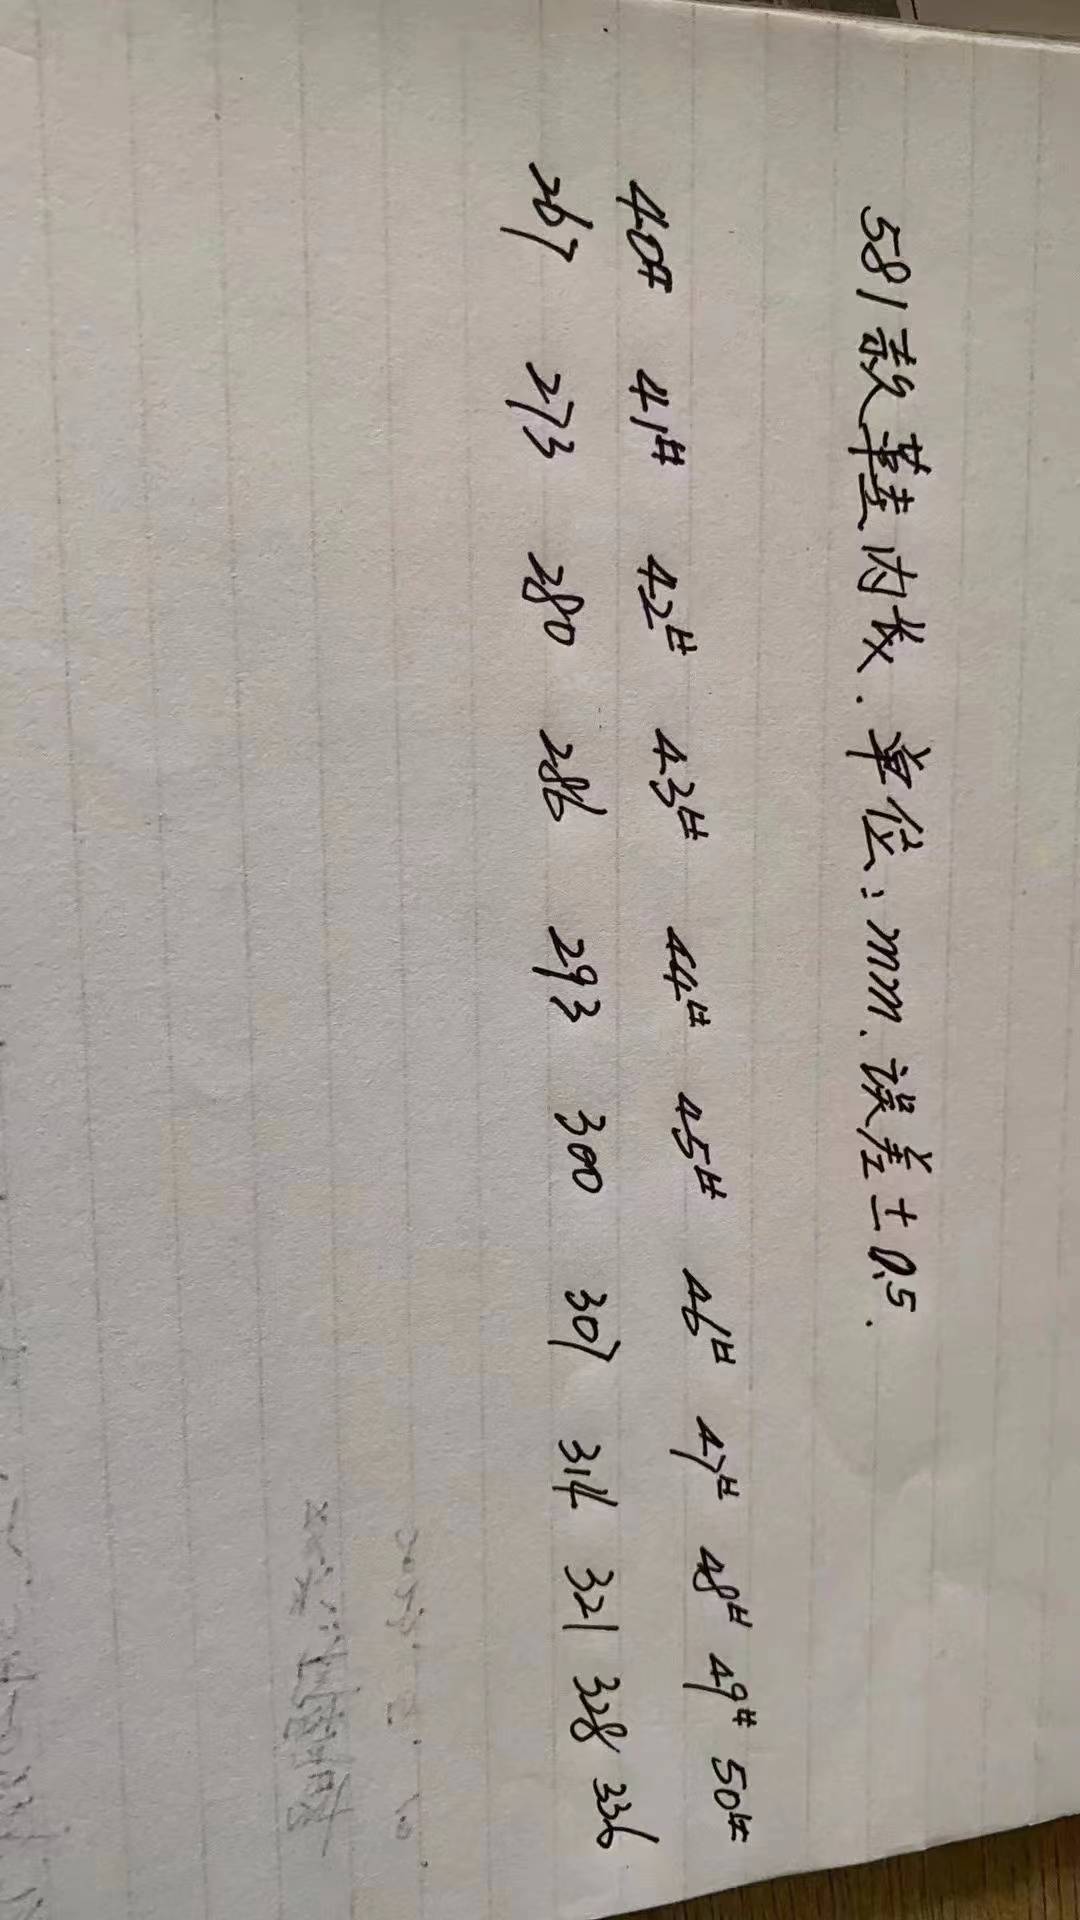 581款鞋内长.单位:mm.误差±0.5.
40# 41# 42# 43# 44# 45# 46# 47# 48# 49# 50#
267 273 280 286 293 300 307 314 321 328 336